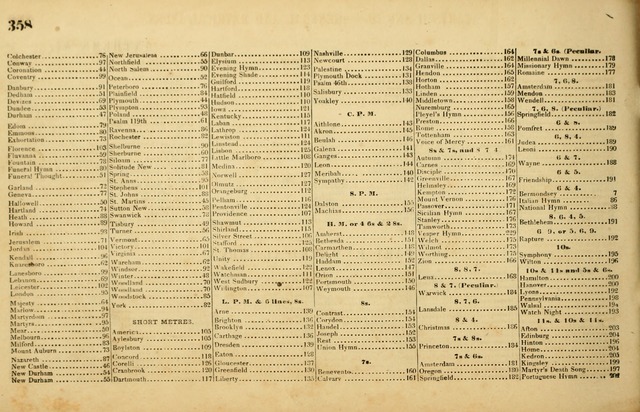 358
Colchester 76
Conway 97
Coronation 44
Coventry 99
Danbury 91
Dedham 51
Devizes 69
Dundee 53
Durham 47
Edyfield 79
Emmons 80
Exhortation 73
Florence 103
Fluvanna 59
Fountain 58
Funeral Hymn 80
Funeral Thought 51
Garland 72
Geneva 77
Hallowell 50
Hartland 74
Heath 88
Howard 89
Irish 93
Jerusalem 71
Jordan
Kendall 96
Lanesboro 99
Lebanon
Leicester 102
London
Majesty 64
Marlow 94
Martyrdom 97
Martyrs 95
Mear 50
Melbourn
Milford 83
Mount Auburn 73
Nazareth 87
New Castle 46
New Durham 54
New Durham 55
New Jerusalem 66
Northfield 55
North Salem 90
Ocean 52
Peterboro 76
Plainfield 84
Plymouth 44
Plympton 93
Poland 48
Psalm 119th 61
Ravenna 86
Rochester 82
Shelburne 90
Sherburne 60
Siloam 77
Solitude New 75
Spring 58
St. Anns 95
Stephens 101
St. Johns 88
St. Martins 45
Sutton New 58
Swanwick 73
Tisbury 49
Turner 56
Vermont 65
Victory 101
Virginia 67
Wareham 62
Windsor 92
Winter 49
Woodland 70
Woodland 70
Woodstock 85
York 82
SHORT METRES.
America 105
Aylesbury
Boylston 109
Concord 118
Corelli 126
Cranbrook 120
Dartmouth 117
Dunbar 109
Elysium 113
Evening Hymn 123
Evening Shade 114
Guilford 119
Hartford 114
Hatfield
Hudson 110
Iowa
Kentucky 110
Laban 107
Lathrop 124
Lewiston
Linstead 124
Lisbon 106
Little Marlboro 108
Medina
Norwell 121
Olmutz 127
Orangeburg
Pelham 116
Pentonville 116
Providence 107
Shawmut
Shirland 115
Silver Street 106
Stafford 125
St. Thomas 117
Unity 119
Wakefield
Watchman 122
West Sudbury 122
Wirington 107
L. P. M. & 6 lines, 8s.
Arne 139
Brighton 136
Brooklyn 132
Carthage 136
Dresden 139
Eaton 128
Gloucester 137
Greenfield 130
Liberty 135
Nashville 129
Newcourt 128
Palestine 134
Plymouth Dock 131
Psalm 46th 138
Salisbury 133
Yoakley 140
C. P. M.
Aithlone 143
Akron 145
Beulah 146
Galena 141
Ganges 143
Leon 144
Meribah 140
Sympathy 142
S. P. M.
Dalston 155
Machias 156
H. M. or 4 6s & 2 8s.
Amherst 148
Bethesda 151
Carmarthen 148
Delight 149
Haddam 152
Lenox 147
Orion 151
Portsmouth 150
Weymouth 146
8s.
Contrast 154
Corydon 154
Handel 153
Joseph 153
Rest 153
Union Hymn 155
7s.
Benevento 160
Calvary 161
Columbus 164
Dallas 162
Granville 164
Hendon 165
Horton 162
Hotham 157
Linden 159
Middletown 158
Nuremburg 165
Pleyel's Hymn 156
Preston 166
Rome 158
Tottenham 163
Voice of Mercy 161
8s & 7s, and 8 7 4.
Autumn 174
Carnes 169
Disciple 170
Greenville 167
Helmsley 169
Kempton 172
Mount Vernon 176
Passover 171
Sicilian Hymn 167
Stanley 176
Tamworth 173
Vesper Hymn 229
Welch 175
Wilmot 175
Worthing 175
Zion 168
8, 8, 7.
Lena 168
8 & 7. (Peculiar.)
Warwick 184
8, 7, 6.
Lansdale 185
8 & 4.
Christmas 186
7s & 8s.
Princeton 184
7s & 6s.
Amsterdam 181
Oregon 180
Springfield 182
7s & 6s. (Peculiar.
Millennial Dawn 178
Missionary Hymn 179
Romaine 177
7, 6, 8.
Amsterdam 181
Mendon 183
Wendell 181
7, 6, 8. (Peculiar.)
Springfield 182
6 & 8.
Pomfret 189
6, 8, 4.
Juden 189
Leoni 190
6 & 7.
Wayne 188
6 & 5.
Friendship 191
6 & 4.
Bermondsey 7
Italian Hymn 86
National Hymn 88
8, 6, 4, 5.
Bethlehem 191
6 9. or 5, 6, 9.
Rapture 192
10s.
Symphony 195
Wilton 196
10s & 11s and 5s & 6s.
Hamilton 200
Hanover 200
Lyons 192
Pennsylvania 198
Walsal 194
Watch Night 193
11s. & 10s & 11s.
Afton 203
Edinburg 204
Hinton 196
Home 204
Kedron 205
Kingsley 199
Martyr's Death Song 197
Portuguese Hymn